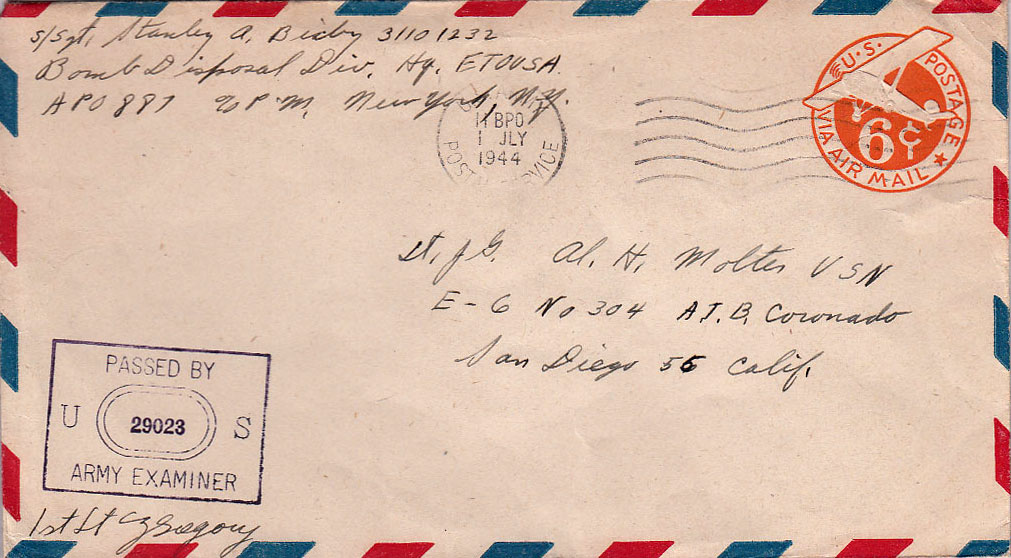 S/Sgt. Stanley A. Bixby 31101232
Bomb Disposal Div. Hq. ETOUSA.
APO 887 % P.M. New York, N.Y.
11 BPO
1 JLY
1944
U.S. POSTAGE
6¢
VIA AIR MAIL
Lt. J.G. Al. H. Molter USN
E-6 No 304 A.T.B. Coronado
San Diego 55 Calif.
PASSED BY
U 29023 S
ARMY EXAMINER
1st Lt Gregory